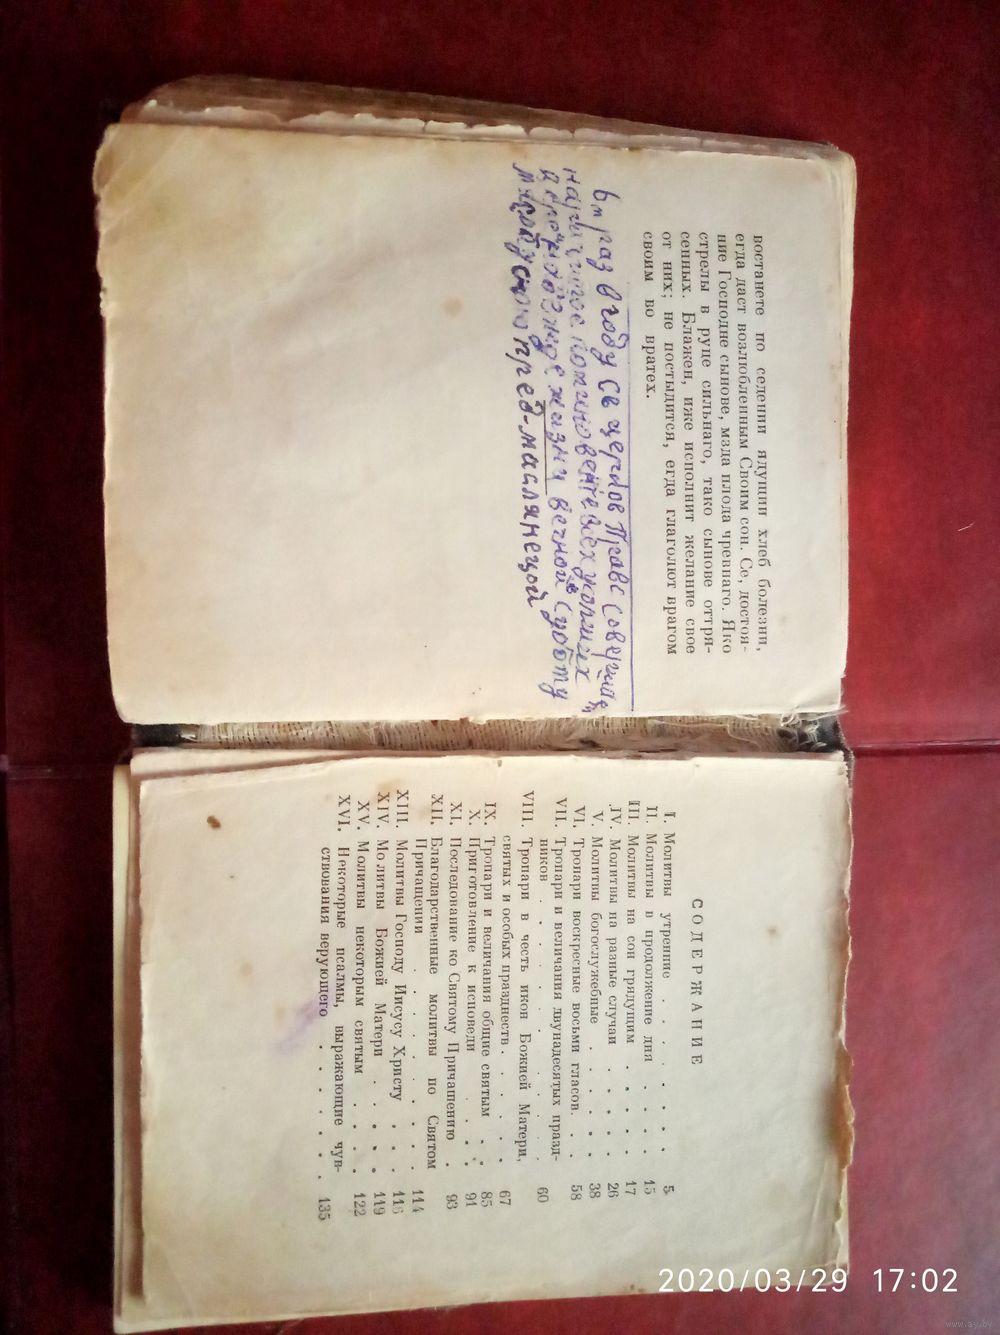 востанете по седении ядущии хлеб болезни,
егда даст возлюбленным Своим сон. Се, достоя-
ние Господне сынове, мзда плода чревнаго. Яко
стрелы в руце сильнаго, тако сынове оттря-
сенных. Блажен, иже исполнит желание свое
от них; не постыдится, егда глаголют врагом
своим во вратех.
раз в году св церков Прав
поминовение всех усопших
жизни вечной в субботу
мясопустную пред-масляницой
СОДЕРЖАНИЕ
I. Молитвы утренние . . . . . . . 5
II. Молитвы в продолжение дня . . . . 15
III. Молитвы на сон грядущим . . . . 17
IV. Молитвы на разные случаи . . . . 26
V. Молитвы богослужебные . . . . . 38
VI. Тропари воскресные восьми гласов. . . 58
VII. Тропари и величания двунадесятых празд-
ников . . . . . . . . . 60
VIII. Тропари в честь икон Божией Матери,
святых и особых празднеств . . . . . 67
IX. Тропари и величания общие святым . . 85
X. Приготовление к исповеди . . . . 91
XI. Последование ко Святому Причащению . 93
XII. Благодарственные молитвы по Святом
Причащении . . . . . . . . 114
XIII. Молитвы Господу Иисусу Христу . . . 116
XIV. Молитвы Божией Матери . . . . . 119
XV. Молитвы некоторым святым . . . . 122
XVI. Некоторые псалмы, выражающие чув-
ствования верующего . . . . . . . 135
2020/03/29 17:02
www.ay.by